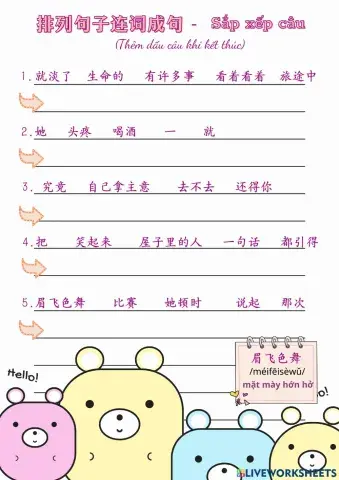 排列句子连词成句 - Sắp xếp câu
(Thêm dấu câu khi kết thúc)
1. 就淡了 生命的 有许多事 看着看着 旅途中
2. 她 头疼 喝酒 一 就
3. 究竟 自己拿主意 去不去 还得你
4. 把 笑起来 屋子里的人 一句话 都引得
5. 眉飞色舞 比赛 她顿时 说起 那次
眉飞色舞
/méifēisèwǔ/
mặt mày hớn hở
Hello!
LIVEWORKSHEETS